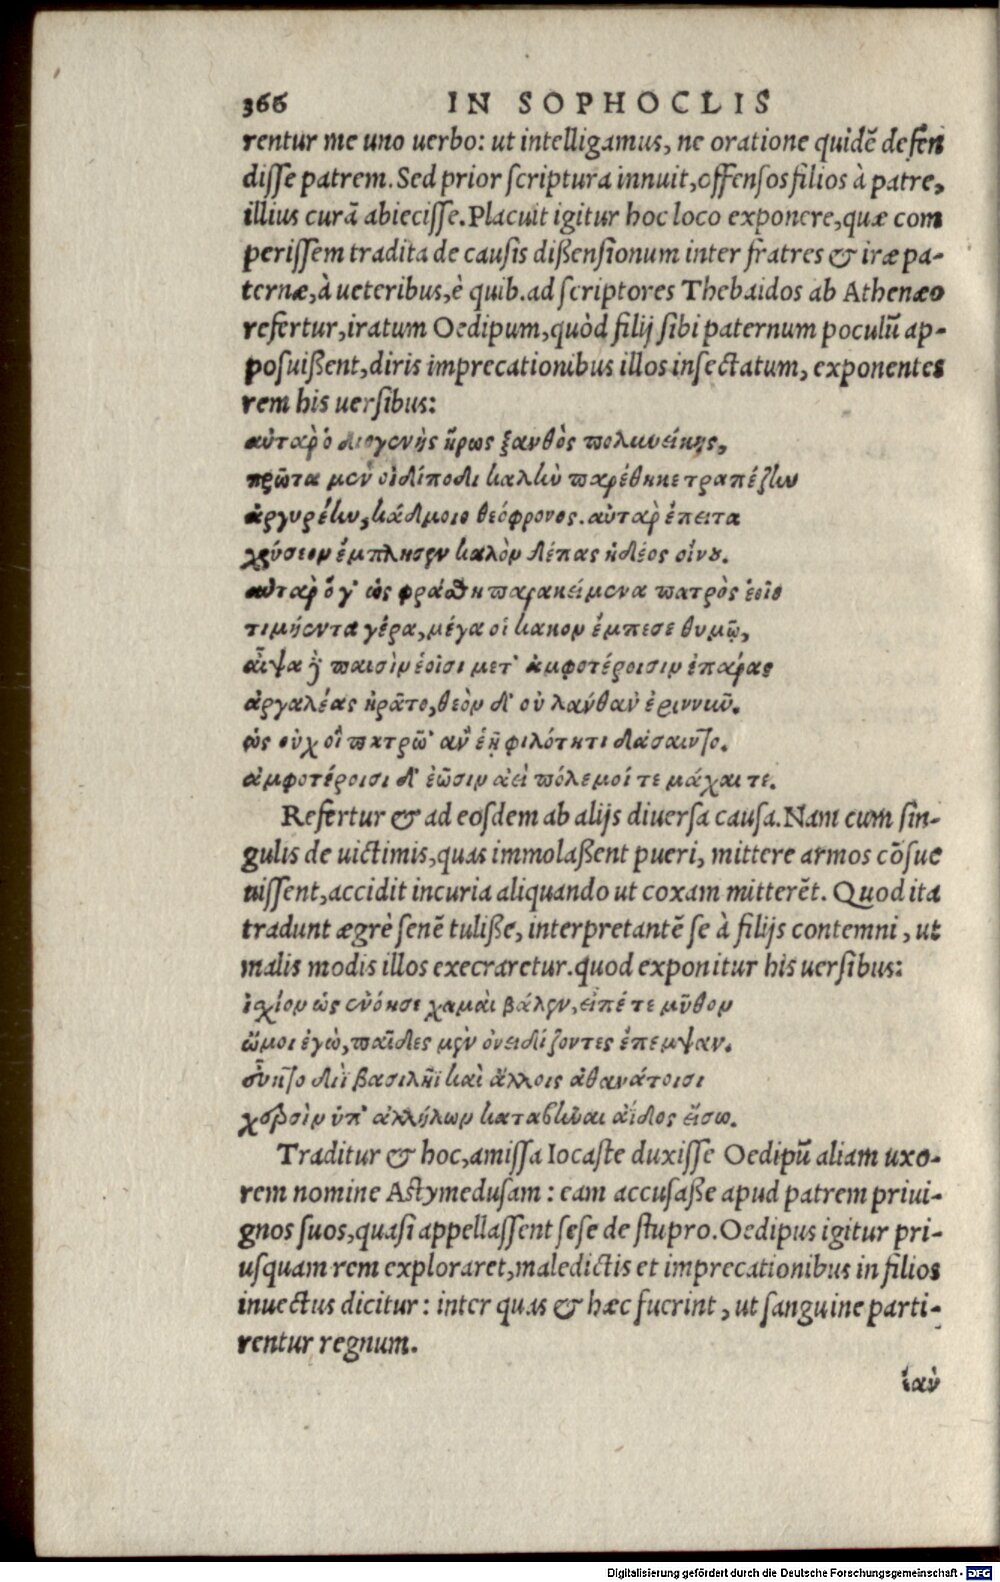 366 IN SOPHOCLIS
rentur me uno uerbo: ut intelligamus, ne oratione quidẽ defen
disse patrem. Sed prior scriptura innuit, offensos filios à patre,
illius curã abiecisse. Placuit igitur hoc loco exponere, quæ com
perissem tradita de causis dißensionum inter fratres & iræ pa-
ternæ, à ueteribus, è quib. ad scriptores Thebaidos ab Athenæo
refertur, iratum Oedipum, quòd filij sibi paternum poculũ ap-
posuißent, diris imprecationibus illos insectatum, exponentes
rem his uersibus:
αὐτὰρ ὁ διογενὴς ἥρως ξανθὸς πολυνείκης,
πρῶτα μὲν οἰδίποδι καλὴν παρέθηκε τραπέζην
ἀργυρέην, κάδμοιο θεόφρονος. αὐτὰρ ἔπειτα
χρύσεον ἔμπλησεν καλὸν δέπας ἡδέος οἴνου.
αὐτὰρ ὅ γ' ὡς φράσθη παρακείμενα πατρὸς ἑοῖο
τιμήεντα γέρα, μέγα οἱ κακον ἔμπεσε θυμῷ,
αἶψα δὲ παισὶν ἑοῖσι μετ' ἀμφοτέροισιν ἐπαρὰς
ἀργαλέας ἠρᾶτο, θεὸν δ' οὐ λάνθαν' ἐριννῦν.
ὡς οὐχ οἳ πατρῶ' ἂν ἑῇ φιλότητι δάσαιντο.
ἀμφοτέροισι δ' ἐῶσιν ἀεὶ πόλεμοί τε μάχαι τε.
Refertur & ad eosdem ab alijs diuersa causa. Nam cum sin-
gulis de uictimis, quas immolaßent pueri, mittere armos cõsue
uissent, accidit incuria aliquando ut coxam mitterẽt. Quod ita
tradunt ægrè senẽ tuliße, interpretantẽ se à filijs contemni, ut
malis modis illos execraretur. quod exponitur his uersibus:
ἰσχίον ὡς ἐνόησε χαμαὶ βάλεν, εἶπέ τε μῦθον
ὤμοι ἐγὼ, παῖδες μὲν ὀνειδίζοντες ἔπεμψαν.
εὖκτο διῒ βασιλῆϊ καὶ ἄλλοις ἀθανάτοισι
χερσὶν ὑπ' ἀλλήλων καταβῆναι ἄϊδος εἴσω.
Traditur & hoc, amissa Iocaste duxisse Oedipũ aliam uxo-
rem nomine Astymedusam: eam accusaße apud patrem priui-
gnos suos, quasi appellassent sese de stupro. Oedipus igitur pri-
usquam rem exploraret, maledictis et imprecationibus in filios
inuectus dicitur: inter quas & hæc fuerint, ut sanguine parti-
rentur regnum.
ἐὰν
Digitalisierung gefördert durch die Deutsche Forschungsgemeinschaft - DFG